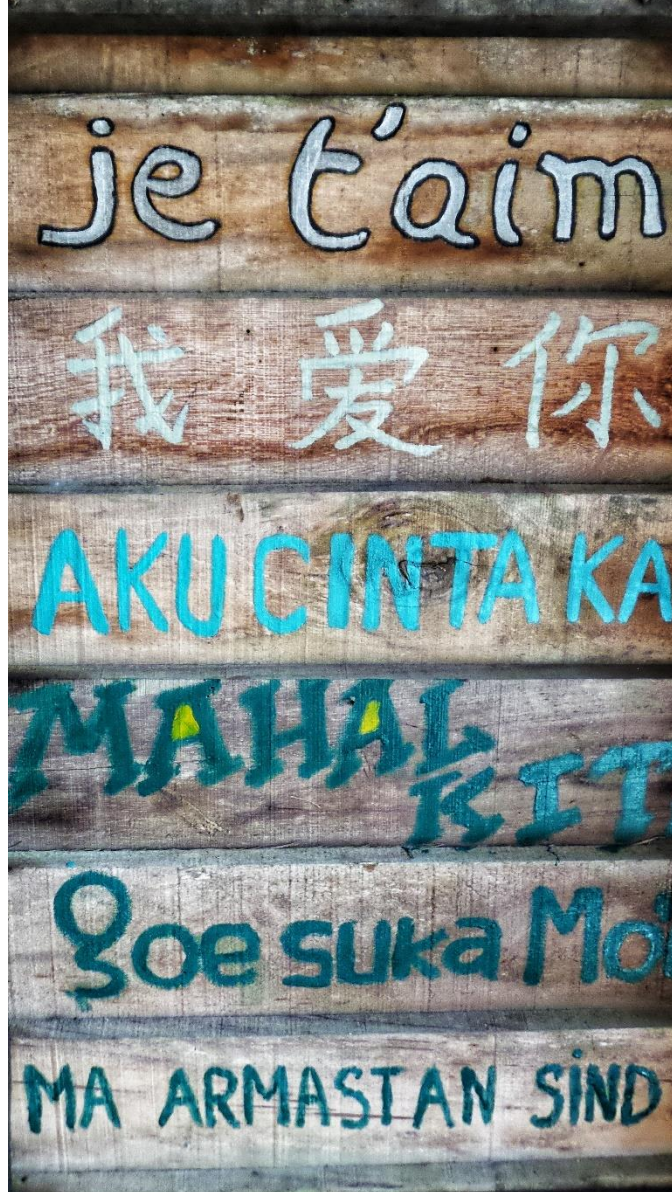 je t'aim
我 爱 你
AKU CINTA KA
MAHAL
KIT
goe suka Mo
MA ARMASTAN SIND